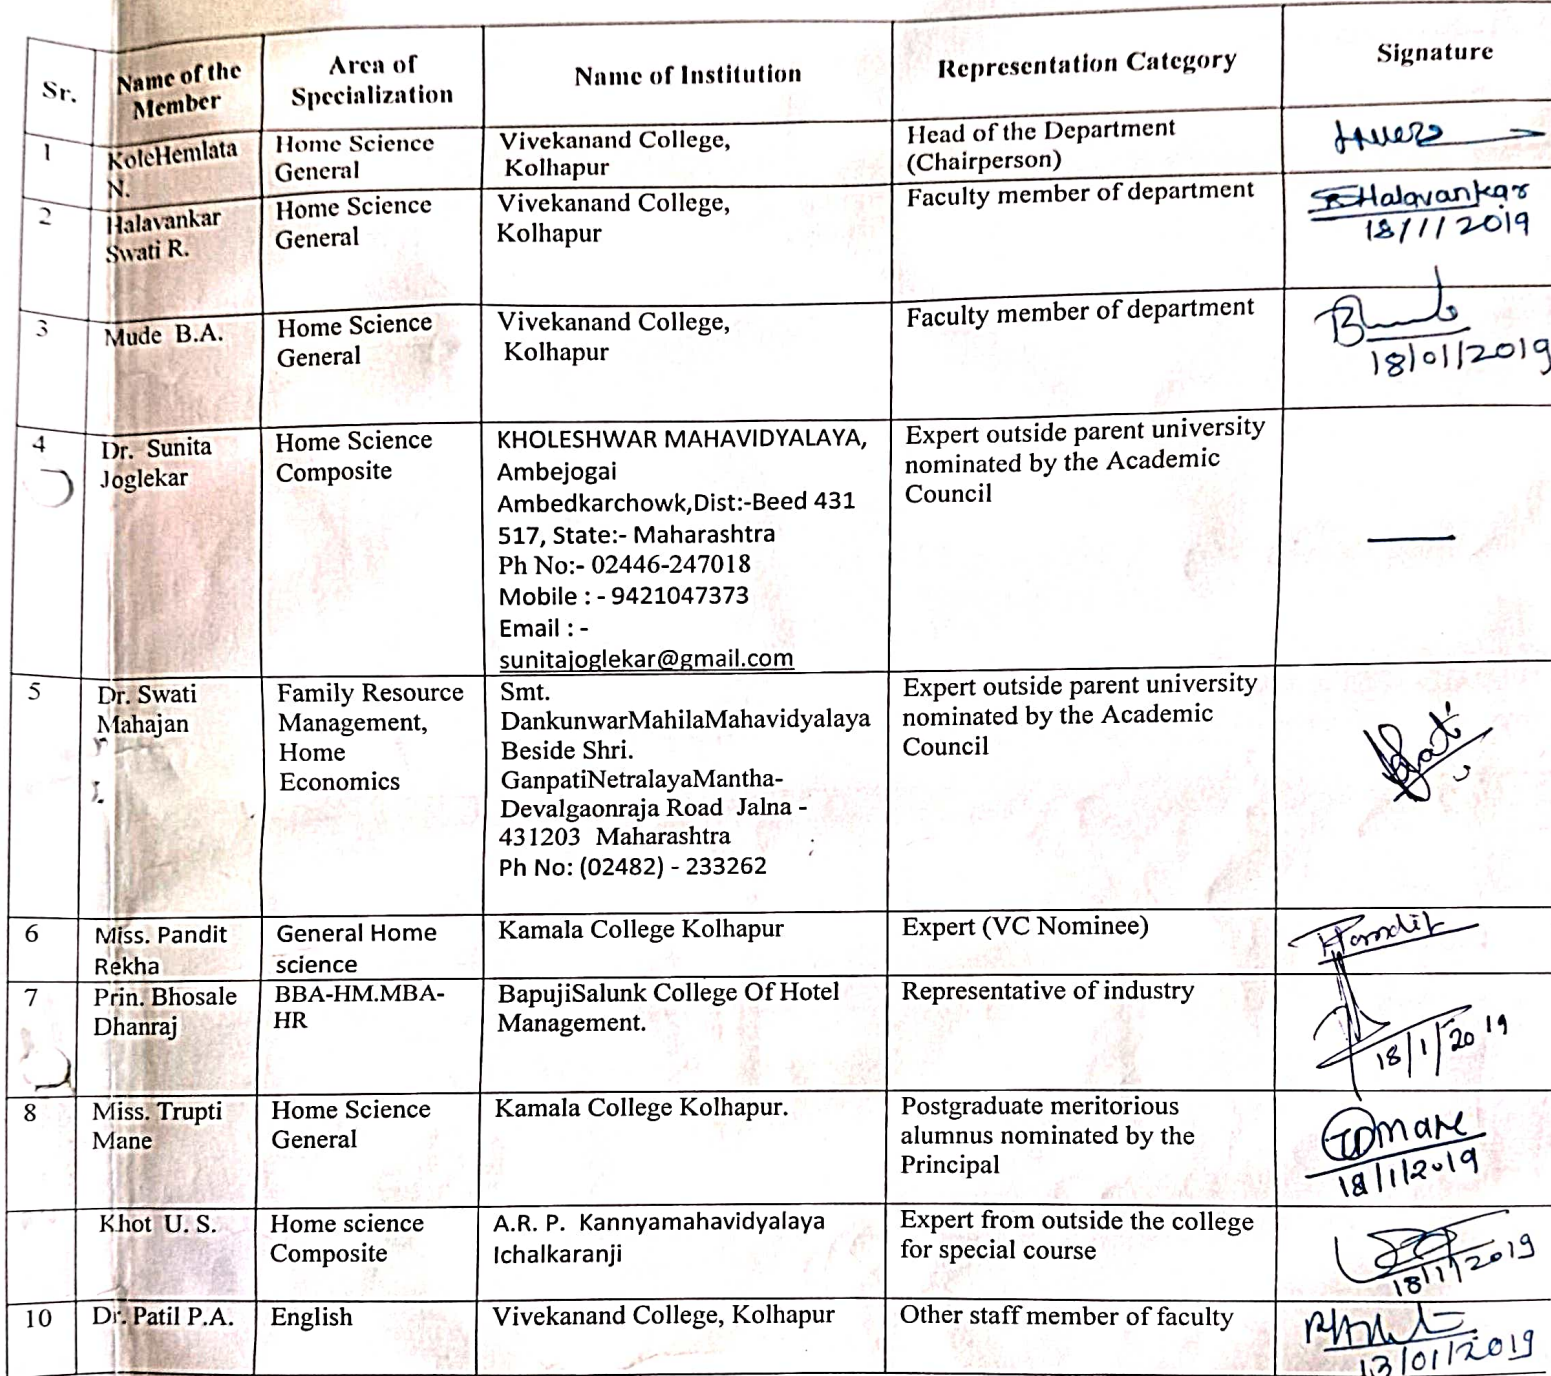 Sr.
Name of the
Member
Area of
Specialization
Name of Institution
Representation Category
Signature
1
KoleHemlata
N.
Home Science
General
Vivekanand College,
Kolhapur
Head of the Department
(Chairperson)
2
Halavankar
Swati R.
Home Science
General
Vivekanand College,
Kolhapur
Faculty member of department
Halavankar
18/1/2019
3
Mude B.A.
Home Science
General
Vivekanand College,
Kolhapur
Faculty member of department
18/01/2019
4
Dr. Sunita
Joglekar
Home Science
Composite
KHOLESHWAR MAHAVIDYALAYA,
Ambejogai
Ambedkarchowk,Dist:-Beed 431
517, State:- Maharashtra
Ph No:- 02446-247018
Mobile : - 9421047373
Email : -
sunitajoglekar@gmail.com
Expert outside parent university
nominated by the Academic
Council
5
Dr. Swati
Mahajan
Family Resource
Management,
Home
Economics
Smt.
DankunwarMahilaMahavidyalaya
Beside Shri.
GanpatiNetralayaMantha-
Devalgaonraja Road Jalna -
431203 Maharashtra
Ph No: (02482) - 233262
Expert outside parent university
nominated by the Academic
Council
6
Miss. Pandit
Rekha
General Home
science
Kamala College Kolhapur
Expert (VC Nominee)
Pandit
7
Prin. Bhosale
Dhanraj
BBA-HM.MBA-
HR
BapujiSalunk College Of Hotel
Management.
Representative of industry
18/1/2019
8
Miss. Trupti
Mane
Home Science
General
Kamala College Kolhapur.
Postgraduate meritorious
alumnus nominated by the
Principal
Mane
18/1/2019
Khot U. S.
Home science
Composite
A.R. P. Kannyamahavidyalaya
Ichalkaranji
Expert from outside the college
for special course
18/1/2019
10
Dr. Patil P.A.
English
Vivekanand College, Kolhapur
Other staff member of faculty